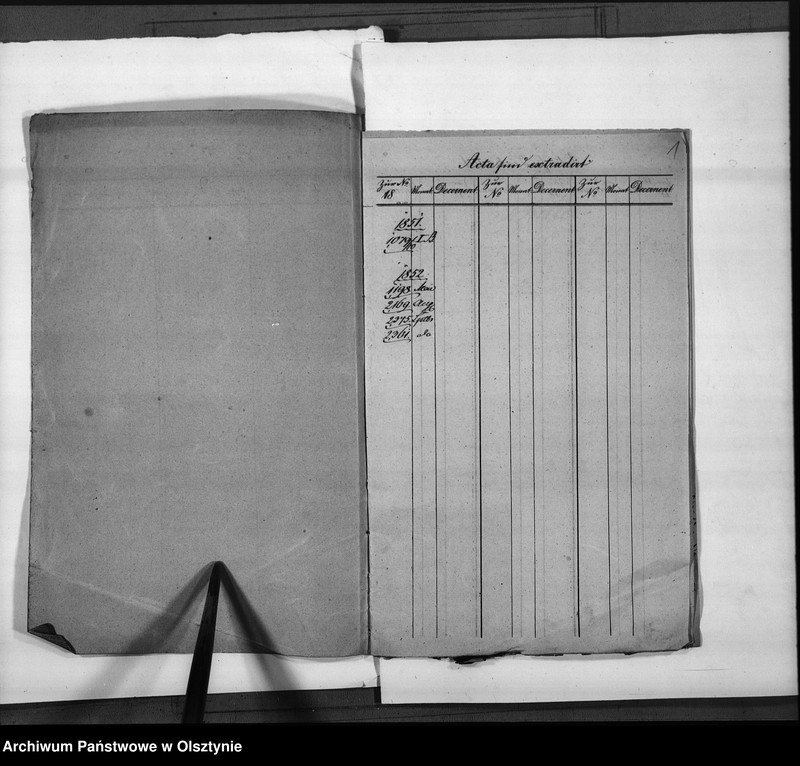 1
Acta sind extradirt
Zur No 18 Monat Decernent Zur No Monat Decernent Zur No Monat Decernent
1851.
I. B
1852
1193. Mai
2169. Aug
2275. Septbr
2361. do
Archiwum Państwowe w Olsztynie